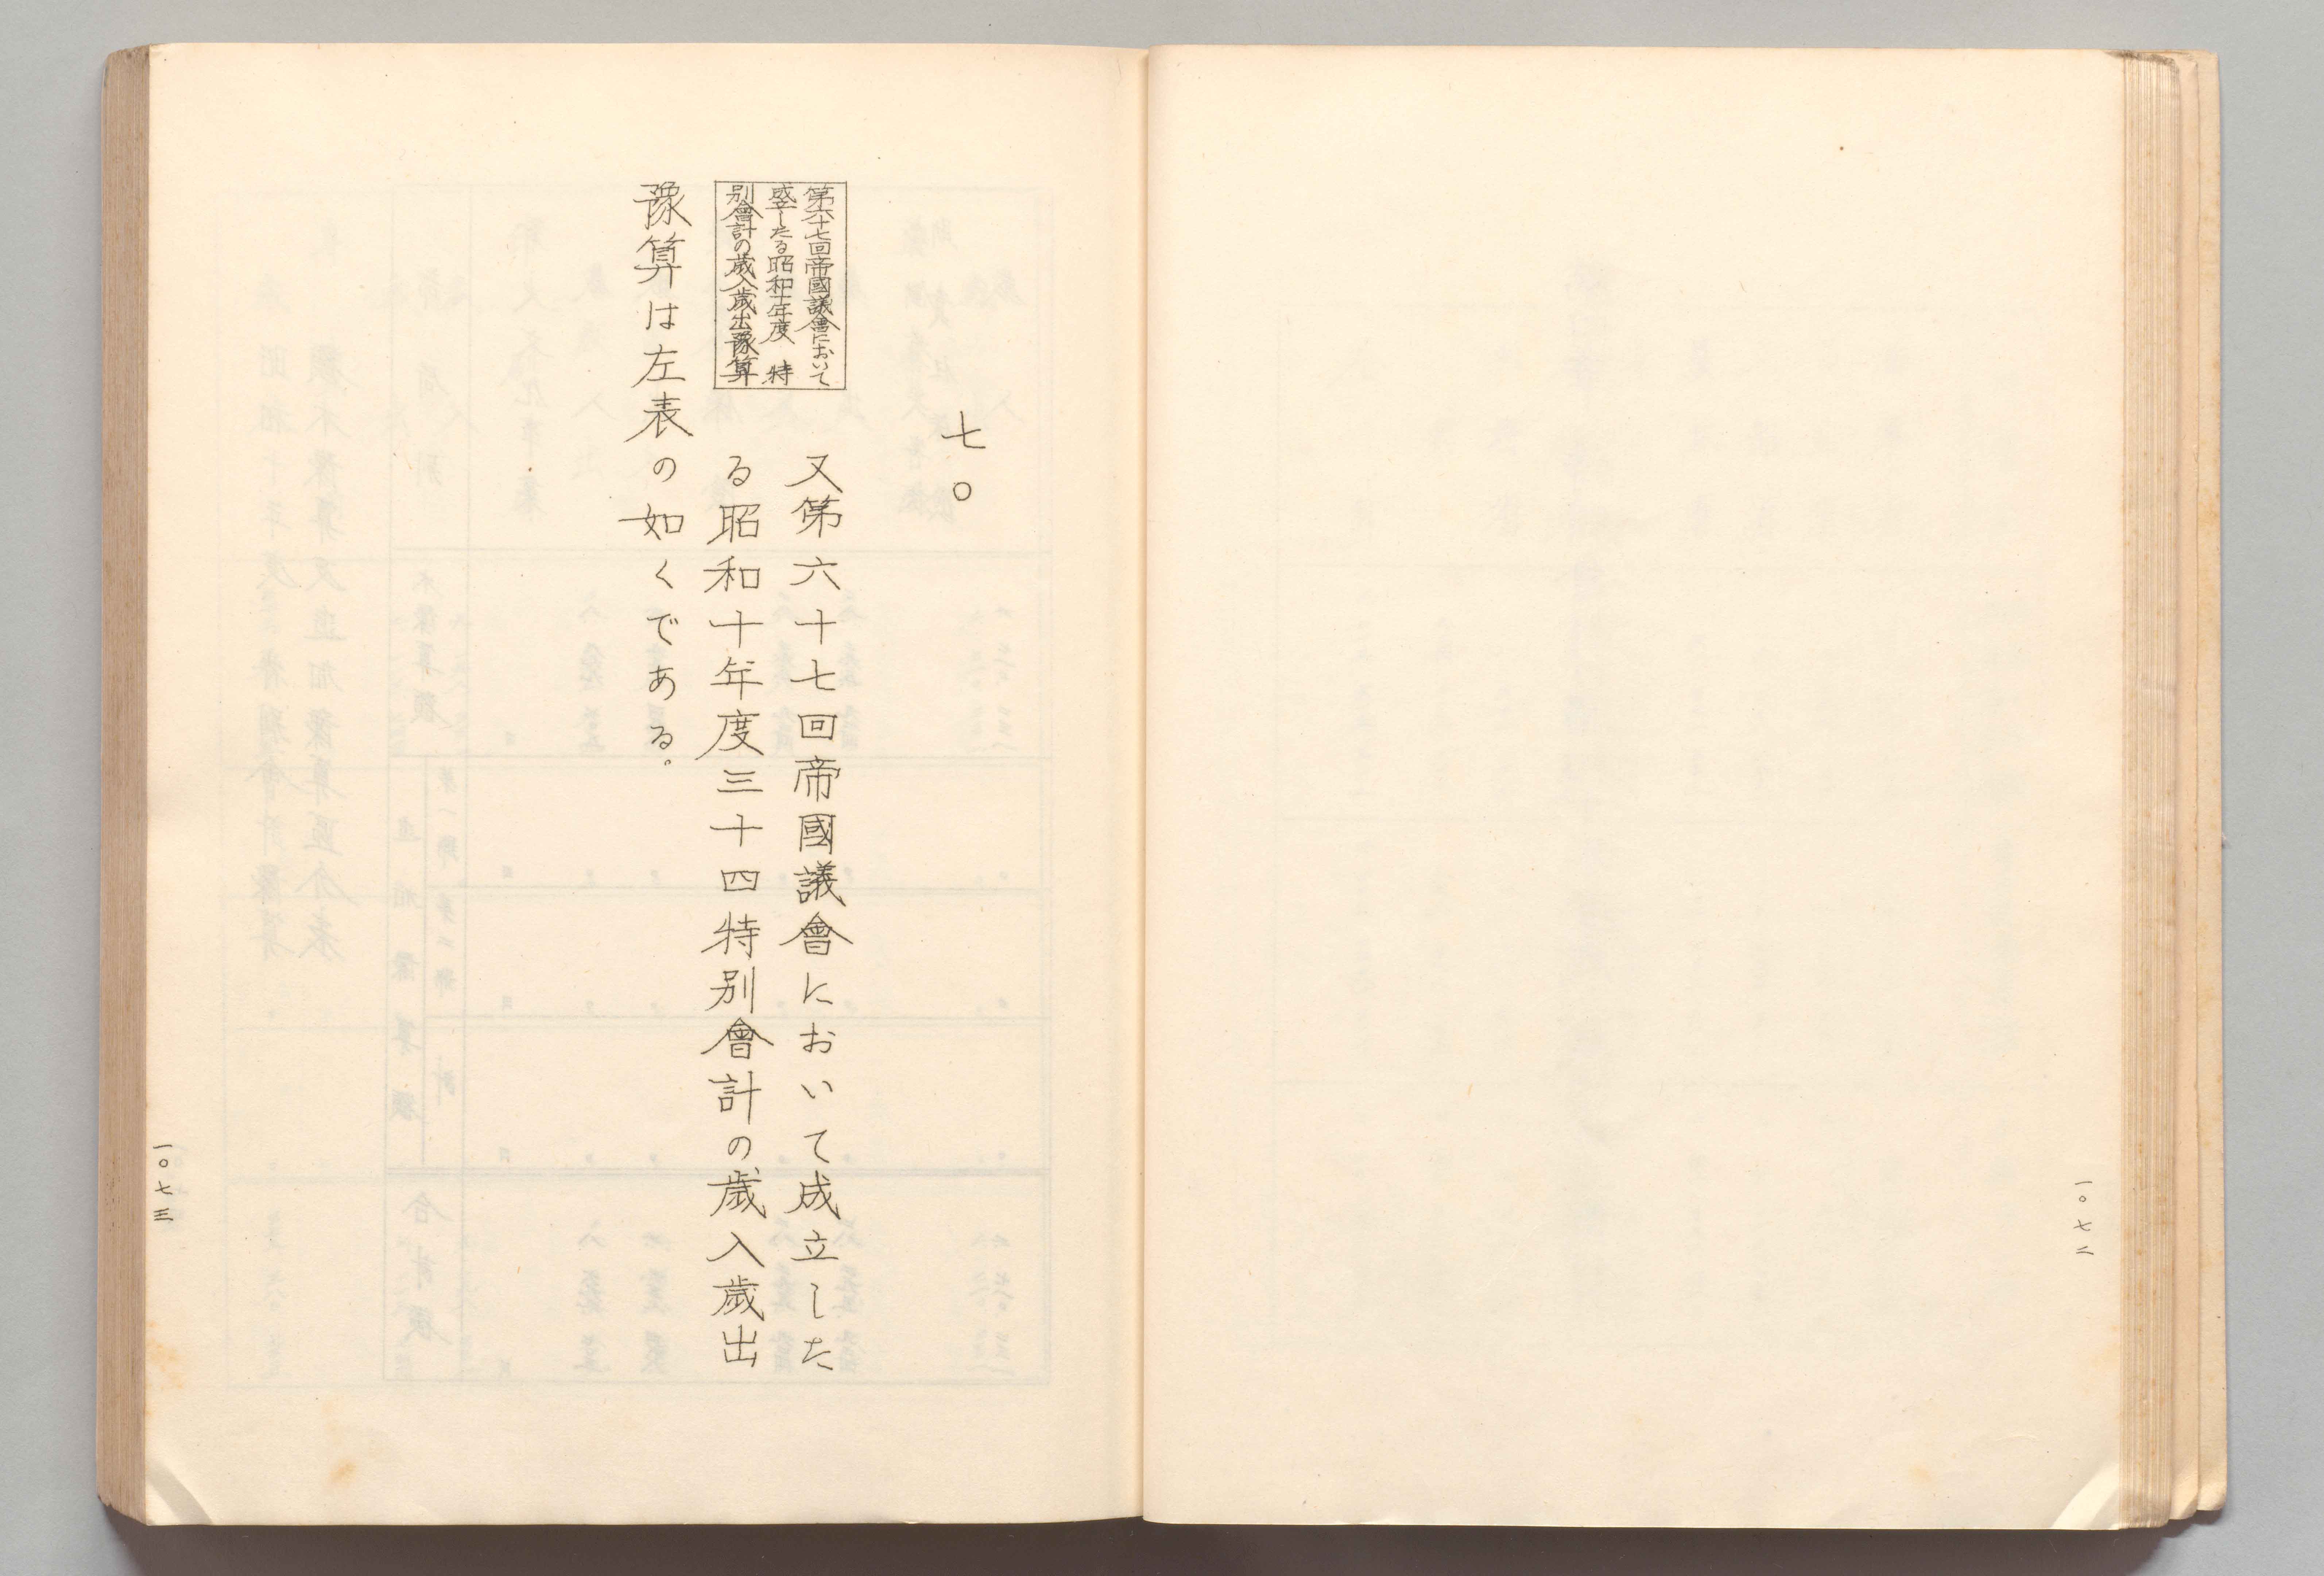 一〇七二
七〇
第六十七回帝國議會において
成立したる昭和十年度 特
別會計の歳入歳出豫算
又第六十七回帝國議會において成立した
る昭和十年度三十四特別會計の歳入歳出
豫算は左表の如くである。
一〇七三